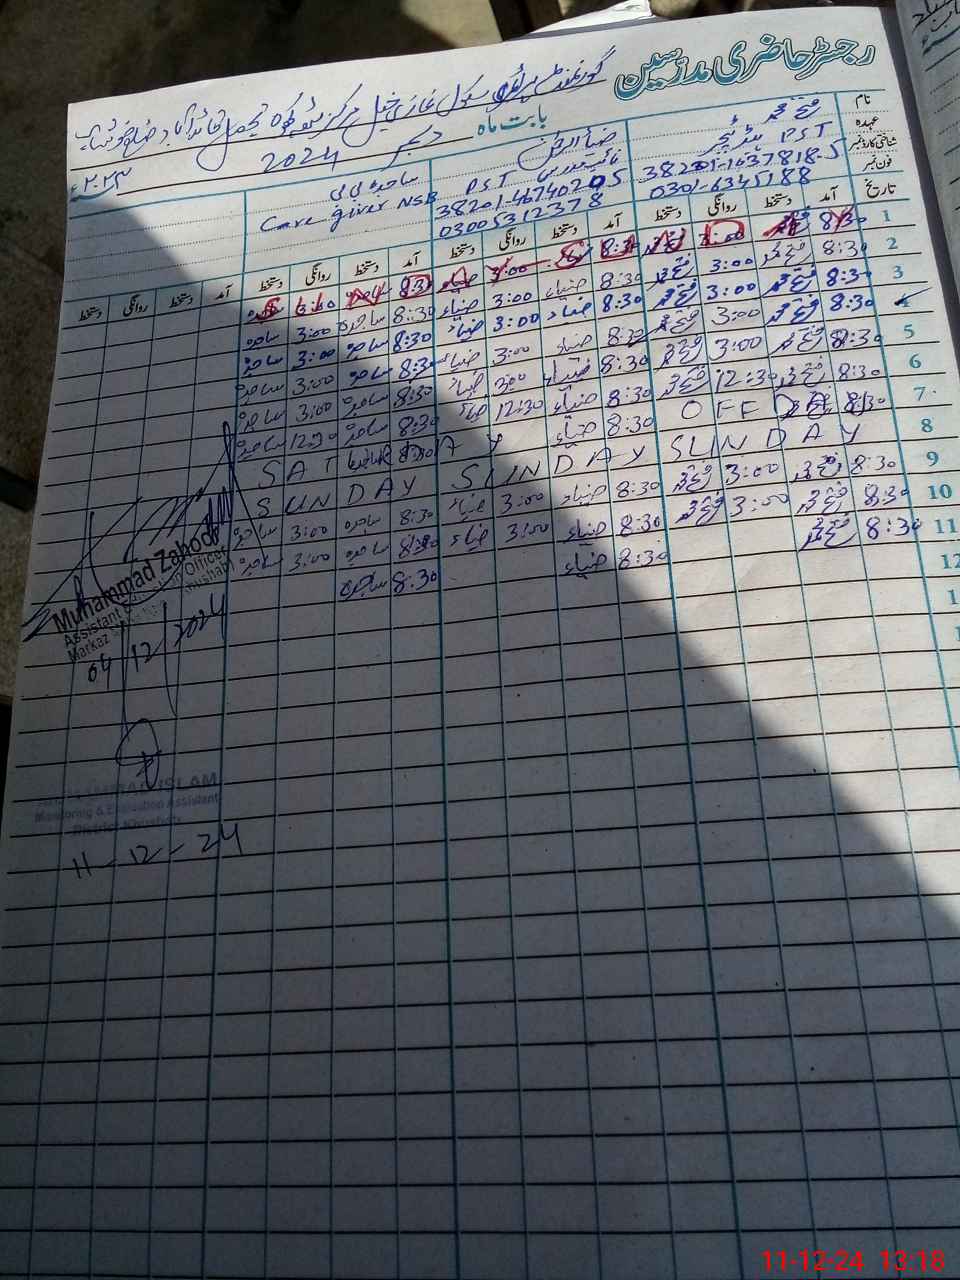 رجسٹر حاضری مدرسین
گورنمنٹ پرائمری سکول غازی خیل مرکز تحصیل قائدآباد ضلع خوشاب
بابت ماہ دسمبر 2024 ۲۰۲۳ء
نام فتح محمد ضیاالحق ساجدہ بی بی
عہدہ ہیڈ ٹیچر PST PST Care giver NSB
شناختی کارڈ نمبر 38201-1637818-5 38201-4674020-5
فون نمبر 0301-6345188 03005312378
تاریخ آمد دستخط روانگی دستخط آمد دستخط روانگی دستخط آمد دستخط روانگی دستخط آمد دستخط روانگی دستخط
1 8:30 3:00 8:30 3:00 8:30
2 8:30 فتح محمد 3:00 فتح محمد 8:30 ضیاء 3:00 ضیاء 8:30 ساجدہ 3:00 ساجدہ
3 8:30 فتح محمد 3:00 فتح محمد 8:30 ضیاء 3:00 ضیاء 8:30 ساجدہ 3:00 ساجدہ
8:30 فتح محمد 3:00 فتح محمد 8:30 ضیاء 3:00 ضیاء 8:30 ساجدہ 3:00 ساجدہ
5 8:30 فتح محمد 3:00 فتح محمد 8:30 ضیاء 3:00 ضیاء 8:30 ساجدہ 3:00 ساجدہ
6 8:30 فتح محمد 12:30 فتح محمد 8:30 ضیاء 12:30 ضیاء 8:30 ساجدہ 12:30 ساجدہ
7 OFF DAY 8:30 ضیاء SATURDAY
8 SUNDAY SUNDAY SUNDAY
9 8:30 فتح محمد 3:00 فتح محمد 8:30 ضیاء 3:00 ضیاء 8:30 ساجدہ 3:00 ساجدہ
10 8:30 فتح محمد 3:00 فتح محمد 8:30 ضیاء 3:00 ضیاء 8:30 ساجدہ 3:00 ساجدہ
11 8:30 فتح محمد 8:30 ضیاء 8:30 ساجدہ
12
Muhammad Zahoor
Assistant Education Officer
Markaz
04/12/2024
ISLAM
Monitoring & Evaluation Assistant
District Khushab
11-12-24
11-12-24 13:18